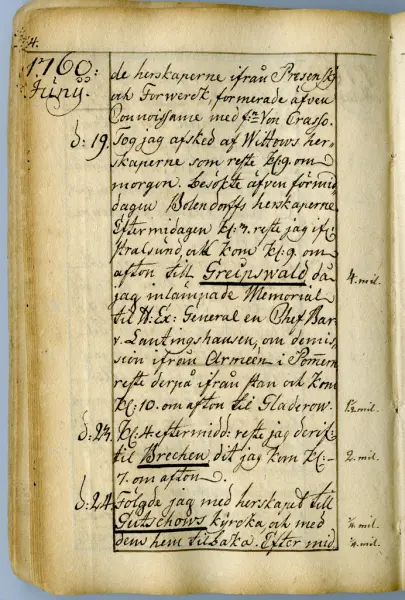 4.
1760:
Junÿ.
de herskaperne ifrån Presensky
och Forwerdt, formerade äfven
Connoissance med frn Von Crasso.
d: 19. Tog jag afsked af Wittows her-
skaperne som reste kl. 9. om
morgon. besökte äfven förmid
dagen Bolendorffs herskaperne
Eftermidagen kl: 7. reste jag if:
stralsund, och kom kl: 9. om
afton till Greipswald då 4. mil.
jag inlämpade Memorial
til H: Ex: General en Chef Bar
v. Lantingshausen, om demis-
sion ifrån Armeen i Pomern
reste derpå ifrån stan och kom
kl: 10. om afton til Gladerow. 1/2 mil.
d: 23. kl: 4. eftermidd: reste jag derif:
til Brechen dit jag kom kl: 2. mil.
7. om afton.
d: 24. Fölgde jag med herskapet till
Gutschows kÿrcka och med 1/4 mil.
dem hem tilbaka. Efter mid 1/4 mil.